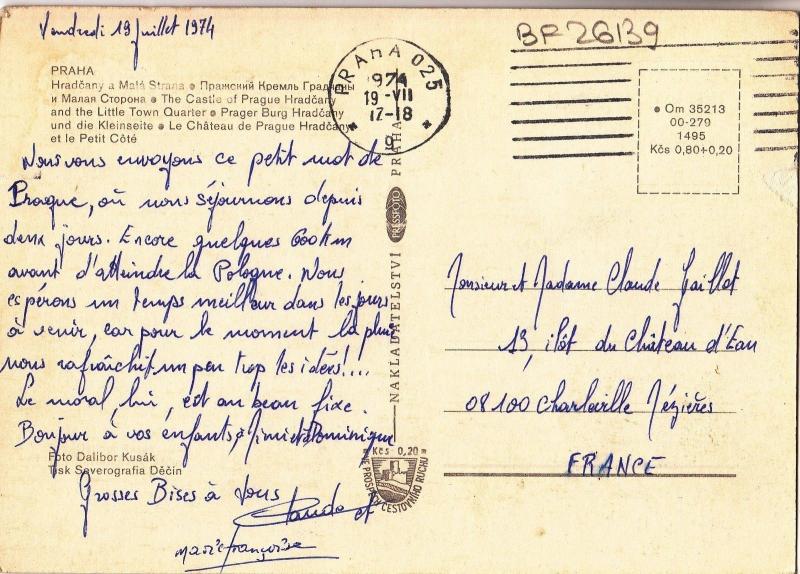 Vendredi 19 Juillet 1974
PRAHA
Hradčany a Malá Strana • Пражский Кремль Градчаны
и Малая Сторона • The Castle of Prague Hradčany
and the Little Town Quarter • Prager Burg Hradčany
und die Kleinseite • Le Château de Prague Hradčany
et le Petit Côté
Nous vous envoyons ce petit mot de
Prague, où nous séjournons depuis
deux jours. Encore quelques 600 km
avant d'atteindre la Pologne. Nous
espérons un temps meilleur dans les jours
à venir, car pour le moment la pluie
nous rafraîchit un peu trop les idées!...
Le moral, lui, est au beau fixe.
Bonjour à vos enfants, à Mimi et Dominique
Foto Dalibor Kusák
Tisk Severografia Děčín
Grosses Bises à vous
Claude et
Marie françoise
NAKLADATELSTVÍ PRESSFOTO PRAHA
Kčs 0,20
VE PROSPĚCH CESTOVNÍHO RUCHU
PRAHA 025
1974
19-VII
17-18
g
BF26139
• Om 35213
00-279
1495
Kčs 0,80+0,20
Monsieur et Madame Claude Gaillot
13, ilôt du Château d'Eau
08100 Charleville Mézières
FRANCE